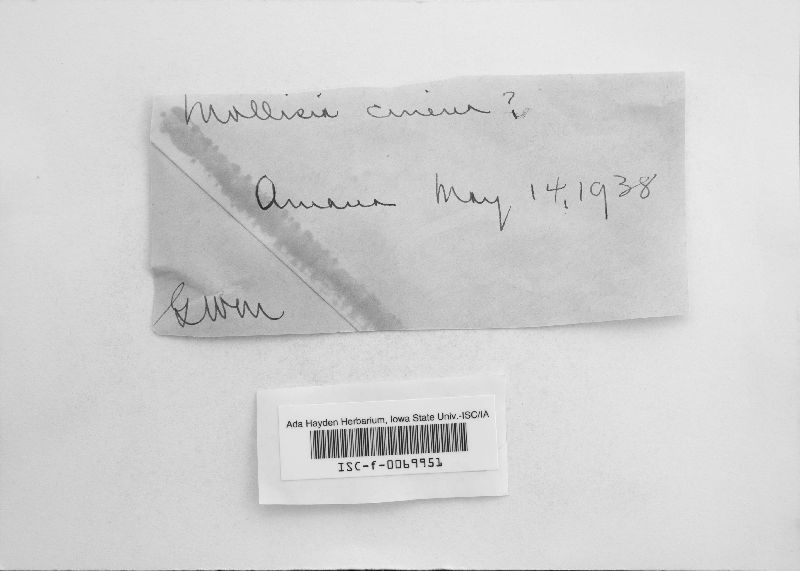 Mollisia cinerea ?
Amana May 14, 1938
GWM
Ada Hayden Herbarium, Iowa State Univ.-ISC/IA
ISC-f-0069951